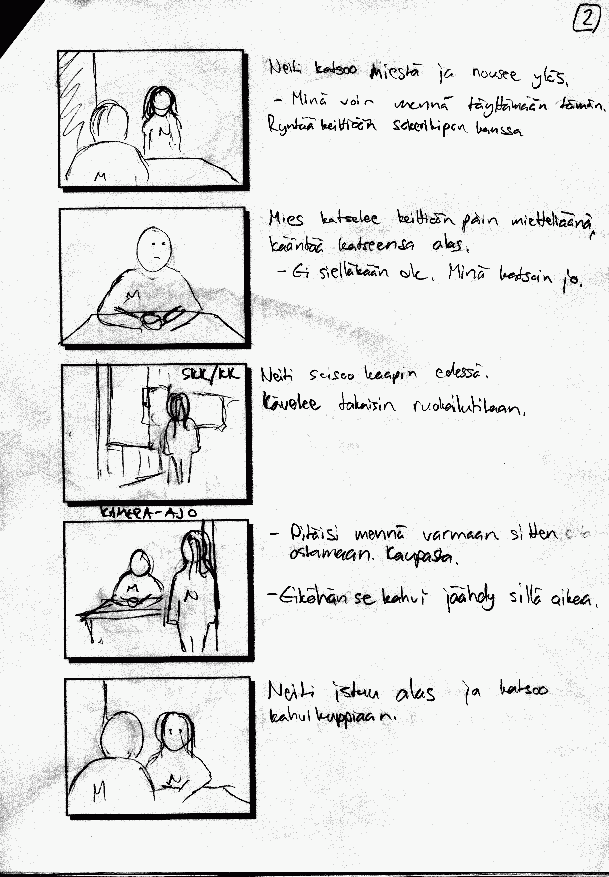 2
Neiti katsoo miestä ja nousee ylös.
- Minä voin mennä täyttämään tämän.
Ryntää keittiöön sokerikipon kanssa
N
M
Mies katselee keittiöön päin mietteliäänä,
kääntää katseensa alas.
- Ei sielläkään ole. Minä katsoin jo.
M
SKK/KK
Neiti seisoo kaapin edessä.
Kävelee takaisin ruokailutilaan.
KAMERA-AJO
- Pitäisi mennä varmaan sitten
ostamaan. Kaupasta.
- Eiköhän se kahvi jäähdy sillä aikaa.
M
N
Neiti istuu alas ja katsoo
kahvikuppiaan.
M
N